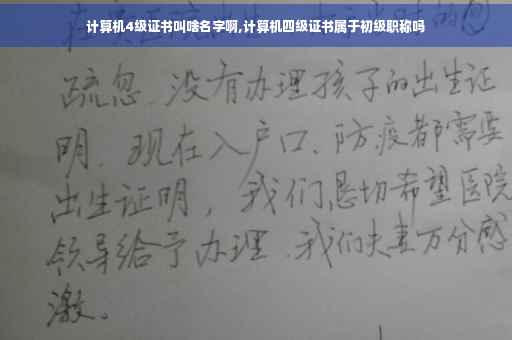 计算机4级证书叫啥名字啊,计算机四级证书属于初级职称吗
疏忽.没有办理孩子的出生证
明.现在入户口、防疫都需要
出生证明，我们恳切希望医院
领导给予办理.我们夫妻万分感
激。